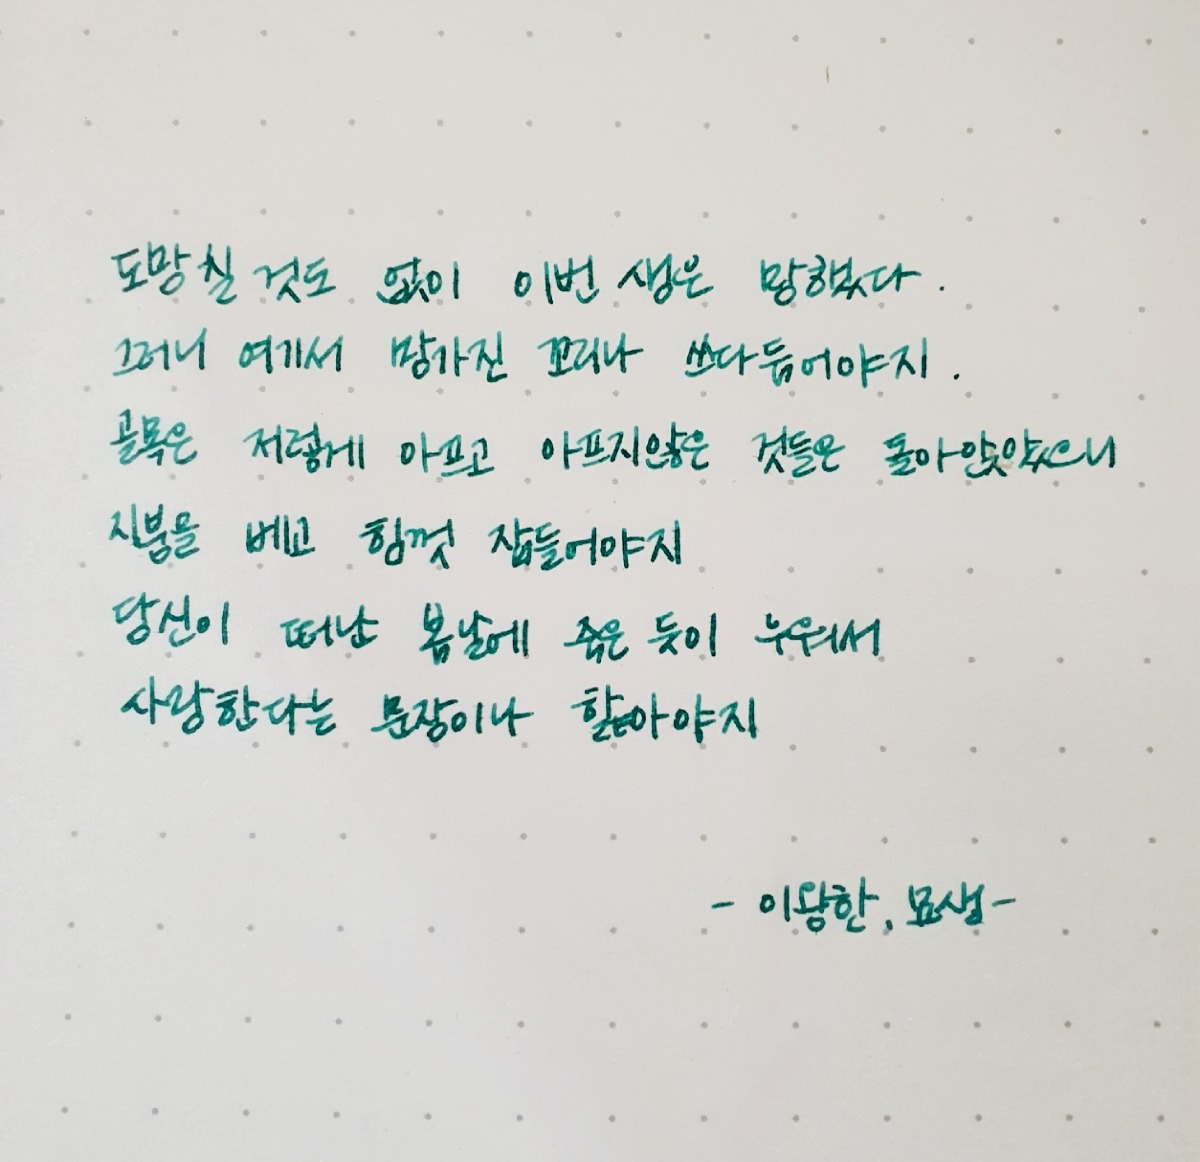 도망칠 것도 없이 이번 생은 망했다.
그러니 여기서 망가진 꼬리나 쓰다듬어야지.
골목은 저렇게 아프고 아프지않은 것들은 돌아앉았으니
지붕을 베고 힘껏 잠들어야지
당신이 떠난 봄날에 죽은 듯이 누워서
사랑한다는 문장이나 핥아야지
- 이왕한, 묘생 -